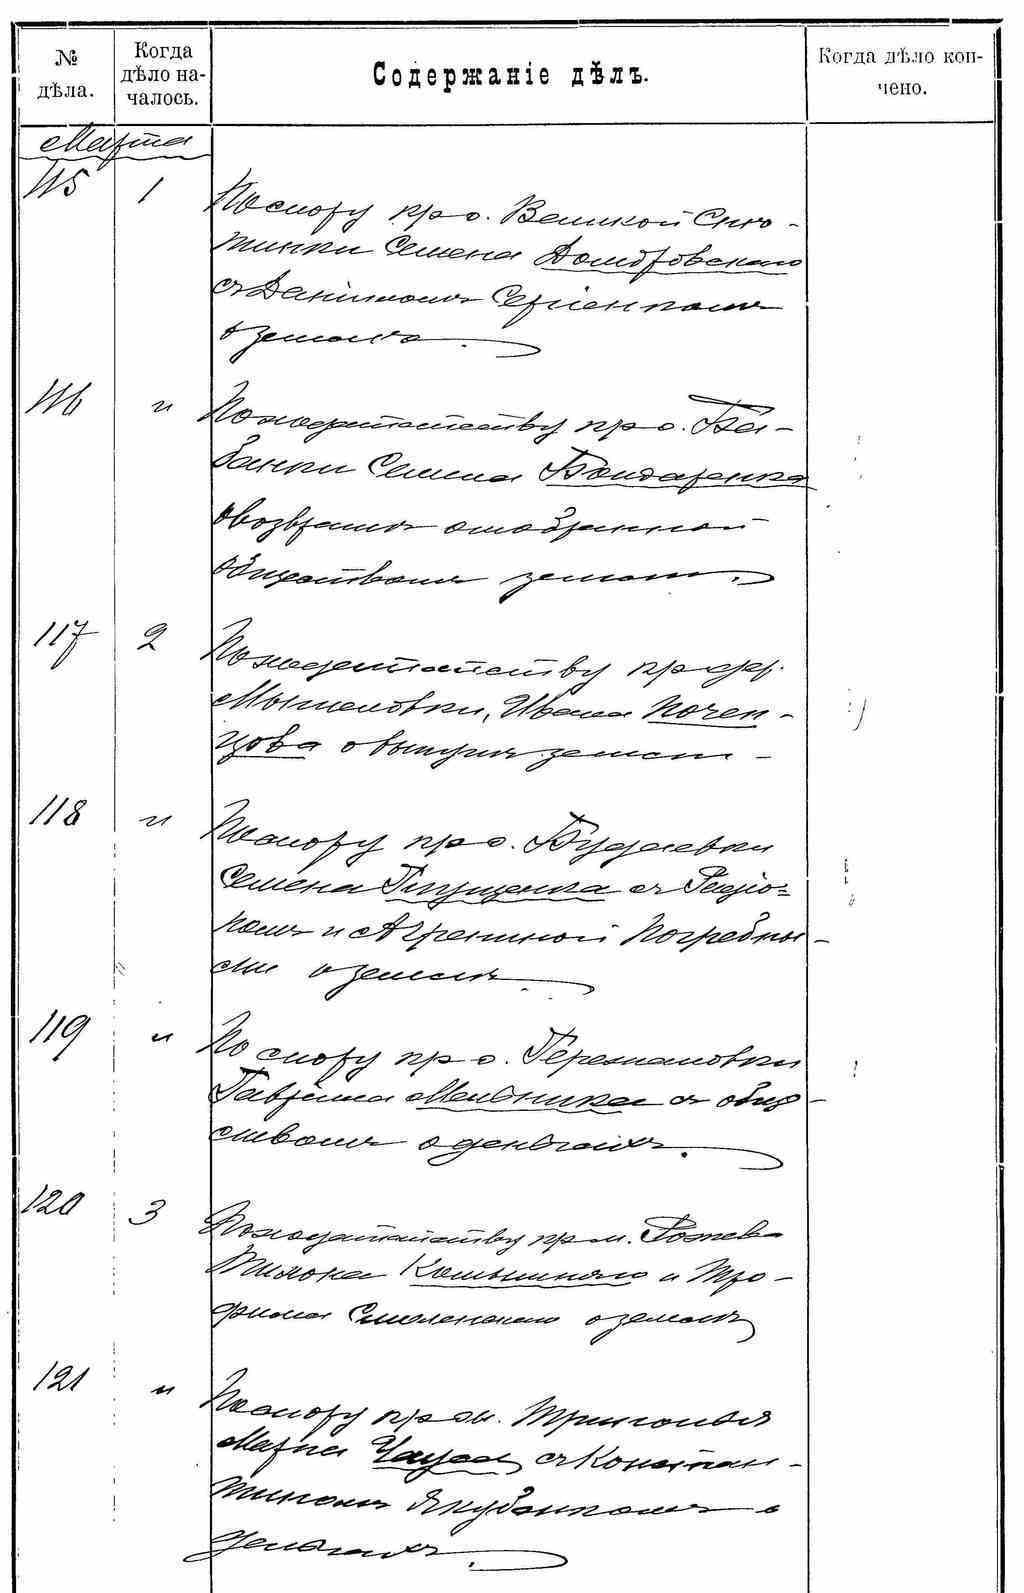 № дѣла.
Когда дѣло на-
чалось.
Содержаніе дѣлъ.
Когда дѣло кон-
чено.
Марта
115 1 По спору кр с. Великой Сню-
тинки Семена Домбровскаго
съ Даніиломъ Сергіенкомъ
о землѣ.
116 " По ходатайству кр с. Ба-
банки Семена Бондаренка
о возвратѣ отобранной
обществомъ земли.
117 2 По ходатайству кр дер.
Мышеловки, Ивана Почеп-
цова о выкупѣ земли -
118 " По спору кр с.
Семена Глущенка съ Радіо-
номъ и Агрепиной Погребны-
ми о землѣ
119 " По спору кр с. Германовки
Гавріила Мельника съ общ-
ствомъ о деньгахъ.
120 3 По ходатайству кр м. Рожева
и Тро-
фима Смоленскаго о землѣ
121 " По спору кр м. Триполья
Марка съ Констан-
тиномъ Якубенкомъ о
деньгахъ.